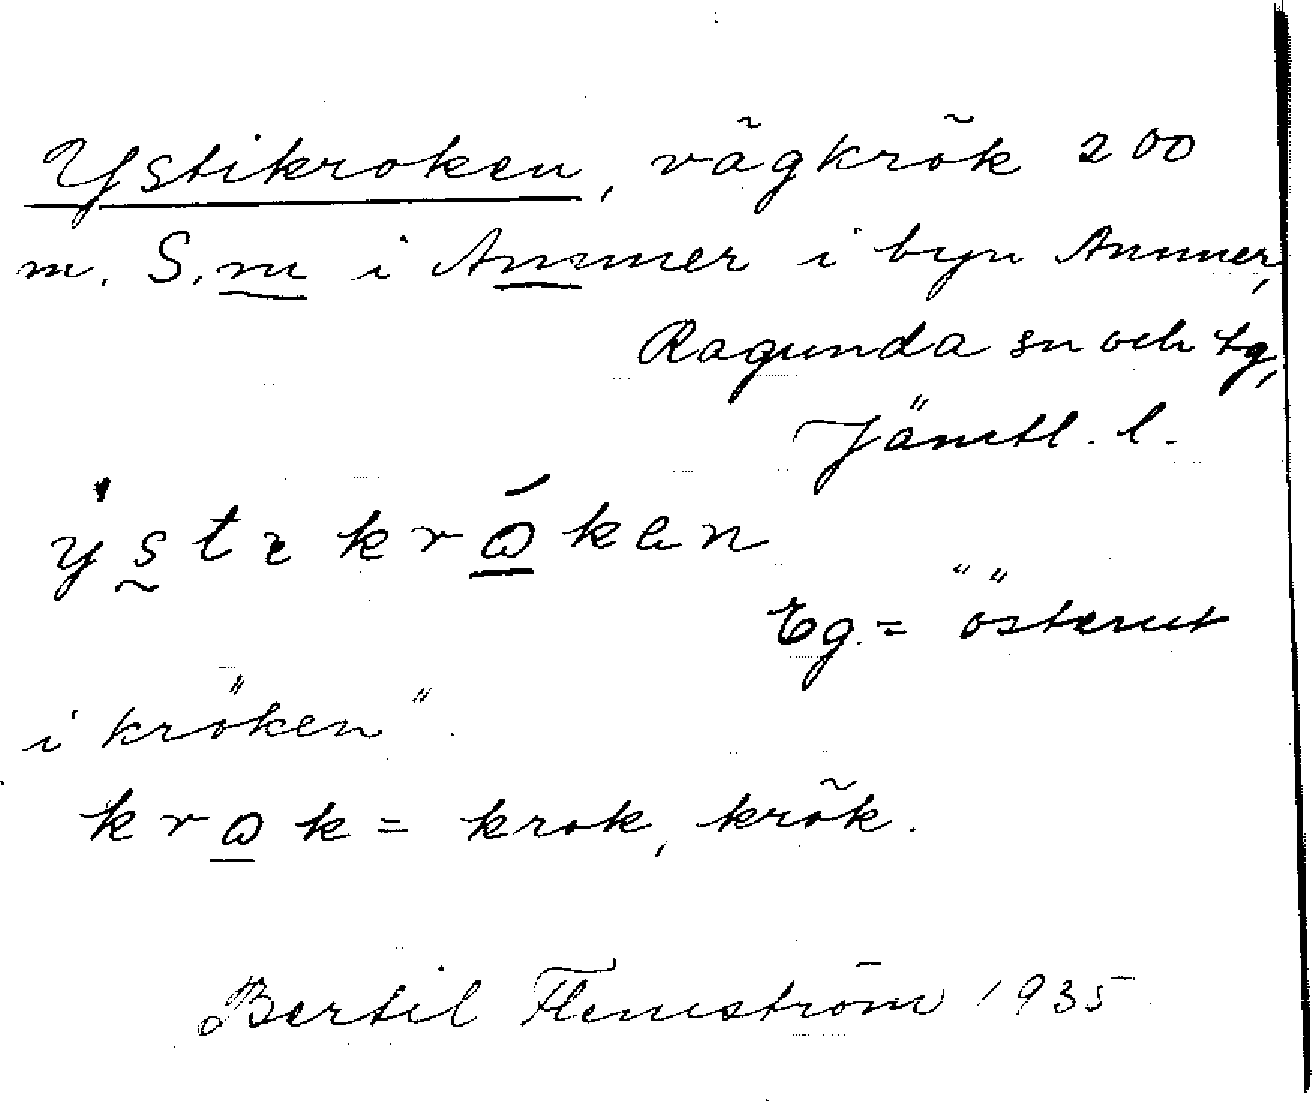 Ystikroken, vägkrök 200
m. S. m i Ammer i byn Ammer,
Ragunda sn och tg,
Jämtl. l.
ystıkrōken
Eg. = "österut
i kröken".
krok = krok, krök.
Bertil Flemström 1935